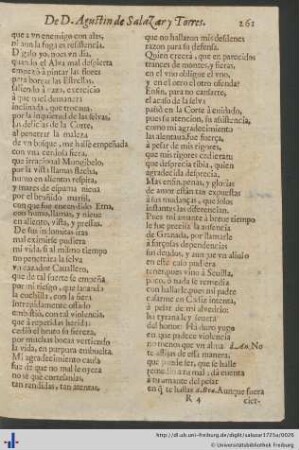 De D. Agustin de Salazar y Torres. 261
que a vn enemigo con alas,
ni aun la fuga es resistencia.
Digalo yo, pues vn dia,
quando el Alva mal despierta
empezò à pintar las flores
para borrar las Estrellas,
saliendo à caza, exercicio
à que mi el donayres
inclinada, que trocava
por la inquietud de las selvas,
las delicias de la Corte,
al penetrar la maleza
de vn bosque, me hallè empeñada
con vna cerdosa fiera,
que irracional Mongibelo,
por la vista llamas flecha,
humo en alientos respira,
y mares de espuma nieva
por el bruñido marfil,
con que fue encendido Etna,
con humo, llamas, y nieve
en aliento, vista, y presas.
De sus indomitas iras
mal eximirse pudiera
mi vida, si al mismo tiempo
no penetràra la selva
vn cazador Cavallero,
que de tal suerte se empeña
por mi riesgo, que sacando
la cuchilla, con la fiera
intrepidamente osado
embistiò, con tal violencia,
que à repetidas heridas
cediò el bruto su fiereza,
por muchas bocas vertiendo
la vida, en purpura embuelta.
Mi agradecimiento cauta
fue de que no mal le oyera
no se que cortesanias,
tan rendidas, tan atentas,
que no hallaron mis desdenes
razon para su defensa.
Quien creerà, que en parecidos
trances de montes, y fieras,
en el vno obligue el vno,
y en el otro el otro ofenda?
Enfin, para no cansarte,
el acaso de la selva
passò en la Corte à cuidado,
pues su atencion, su assistencia,
como mi agradecimiento
las alentava, fue fuerça,
à pesar de mis rigores,
que mis rigores cedieran:
que desprecia tibia, quien
agradecida desprecia.
Mas enfin, penas, y glorias
de amor estàn tan expuestas
à sus mudanças, que solos
instantes las diferencian.
Pues mi amante à breve tiempo
le fue precisa la ausencia
de Granada, por llamarle
à forçosas dependencias
sus deudos, y aun yo aliviò
en este caso pudiera
tener, pues vino à Sevilla,
pero, ò nada se remedia
con hallarle, pues mi padre
casarme con Carlos intenta
à pesar de mi alvedrio:
ha tyrana ley severa
del honor! Ha duro yugo
que padece con violencia,
no menos que vn alma! d.An. No
te aflijas de essa manera,
que puede ser, que se halle
remedio à tu mal: dà cuenta
à tu amante del pesar
en q̃ te hallas. d.Bea. Aunque fuera
R 4 cier-
http://dl.ub.uni-freiburg.de/diglit/salazar1725a/0029
Universitätsbibliothek Freiburg